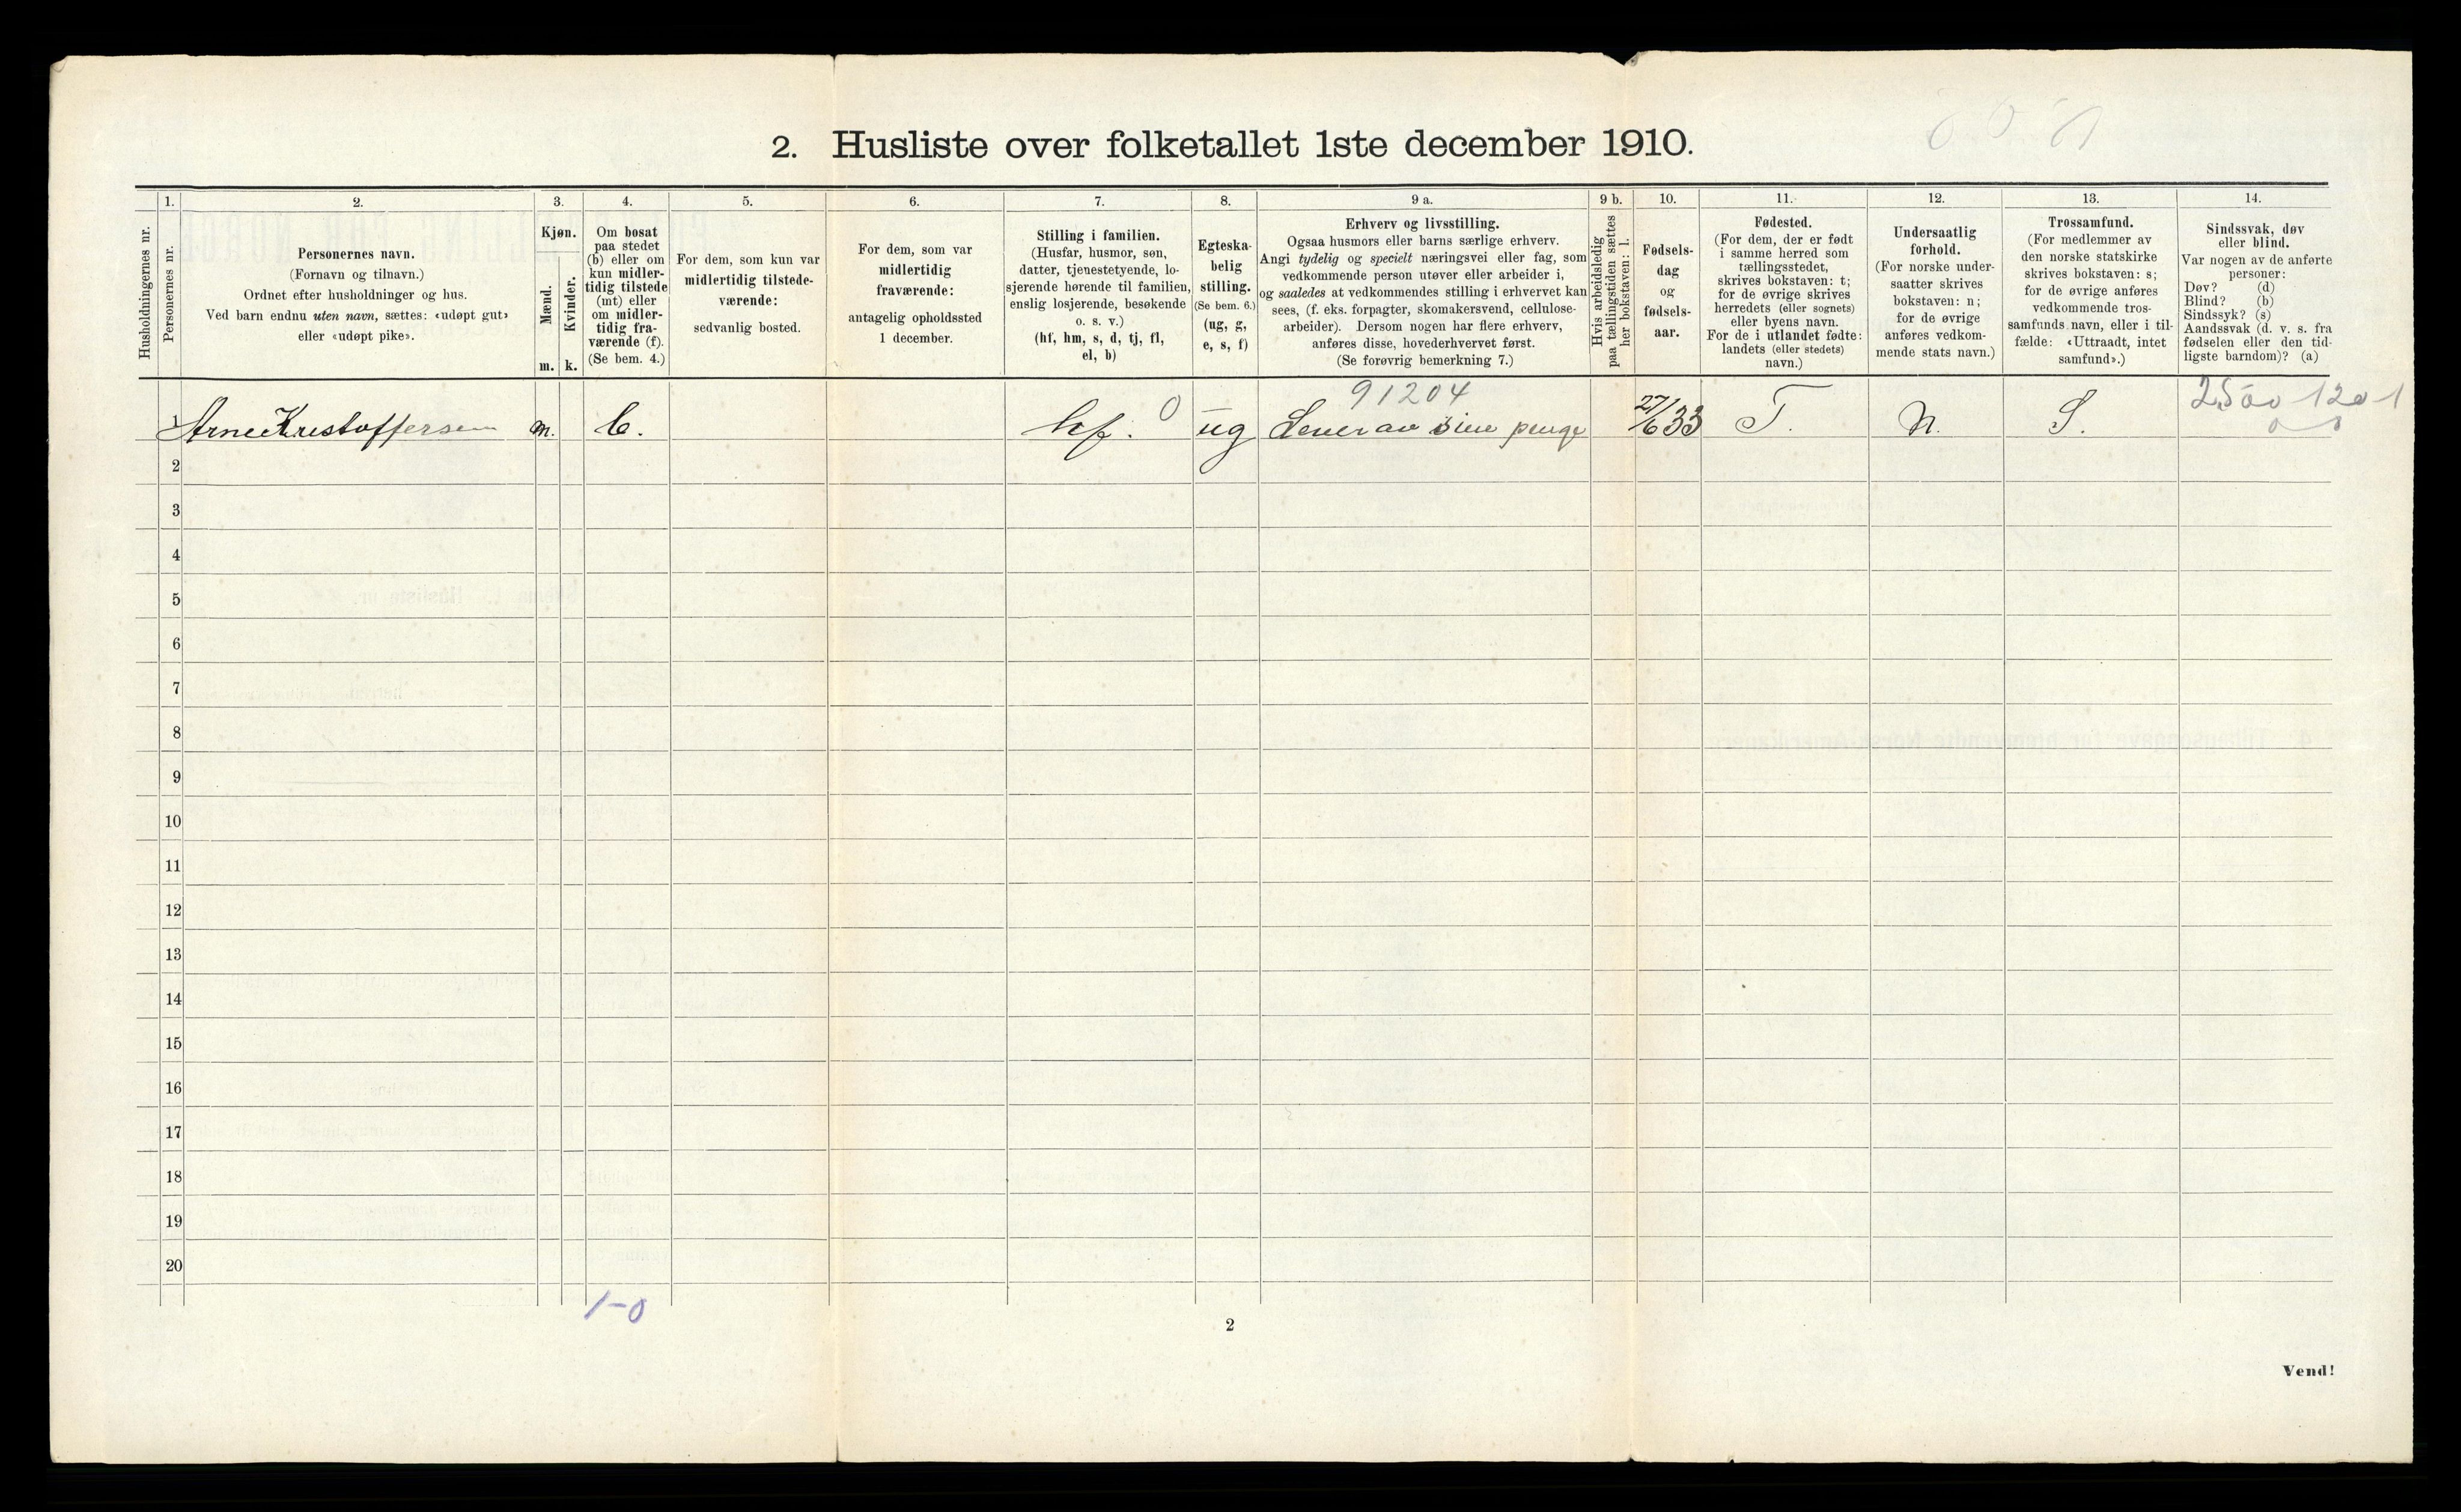 2. Husliste over folketallet 1ste december 1910.
1. 2. 3. 4. 5. 6. 7. 8. 9 a. 9 b. 10. 11. 12. 13. 14.
Husholdningernes nr.
Personernes nr.
Personernes navn.
(Fornavn og tilnavn.)
Ordnet efter husholdninger og hus.
Ved barn endnu uten navn, sættes: «udøpt gut»
eller «udøpt pike».
Kjøn.
Mænd.
Kvinder.
m. k.
Om bosat
paa stedet
(b) eller om
kun midler-
tidig tilstede
(mt) eller
om midler-
tidig fra-
værende (f).
(Se bem. 4.)
For dem, som kun var
midlertidig tilstede-
værende:
sedvanlig bosted.
For dem, som var
midlertidig
fraværende:
antagelig opholdssted
1 december.
Stilling i familien.
(Husfar, husmor, søn,
datter, tjenestetyende, lo-
sjerende hørende til familien,
enslig losjerende, besøkende
o. s. v.)
(hf, hm, s, d, tj, fl,
el, b)
Egteska-
belig
stilling.
(Se bem. 6.)
(ug, g,
e, s, f)
Erhverv og livsstilling.
Ogsaa husmors eller barns særlige erhverv.
Angi tydelig og specielt næringsvei eller fag, som
vedkommende person utøver eller arbeider i,
og saaledes at vedkommendes stilling i erhvervet kan
sees, (f. eks. forpagter, skomakersvend, cellulose-
arbeider). Dersom nogen har flere erhverv,
anføres disse, hovederhvervet først.
(Se forøvrig bemerkning 7.)
Hvis arbeidsledig
paa tællingstiden sættes
her bokstaven: l.
Fødsels-
dag
og
fødsels-
aar.
Fødested.
(For dem, der er født
i samme herred som
tællingsstedet,
skrives bokstaven: t;
for de øvrige skrives
herredets (eller sognets)
eller byens navn.
For de i utlandet fødte:
landets (eller stedets)
navn.)
Undersaatlig
forhold.
(For norske under-
saatter skrives
bokstaven: n;
for de øvrige
anføres vedkom-
mende stats navn.)
Trossamfund.
(For medlemmer av
den norske statskirke
skrives bokstaven: s;
for de øvrige anføres
vedkommende tros-
samfunds navn, eller i til-
fælde: «Uttraadt, intet
samfund».)
Sindssvak, døv
eller blind.
Var nogen av de anførte
personer:
Døv? (d)
Blind? (b)
Sindssyk? (s)
Aandssvak (d. v. s. fra
fødselen eller den tid-
ligste barndom)? (a)
91204
1 Arne Kristoffersen m. b. hf. 0 ug Lever av sine penge 27/6 33 T. N. S.
2
3
4
5
6
7
8
9
10
11
12
13
14
15
16
17
18
19
20
1-0
2
Vend!